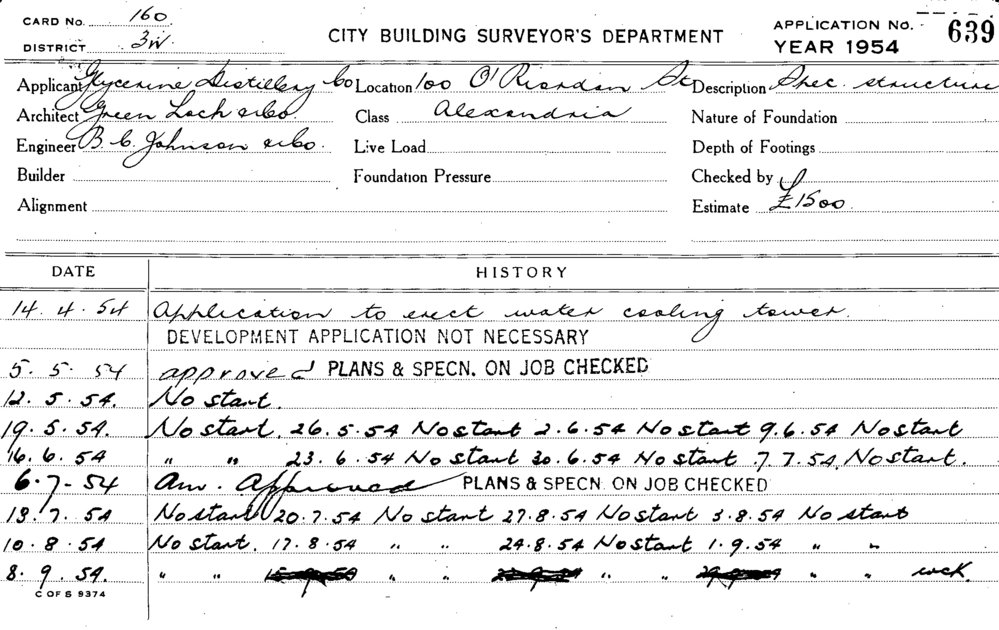 CARD No. 160
DISTRICT 3W.
CITY BUILDING SURVEYOR'S DEPARTMENT
APPLICATION No. 639
YEAR 1954
Applicant Glycerine Distillery Co Location 100 O'Riordan St Description Spec. structure
Architect Green Loch & Co. Class Alexandria Nature of Foundation
Engineer B. C. Johnson & Co. Live Load Depth of Footings
Builder Foundation Pressure Checked by
Alignment Estimate £1500.
DATE HISTORY
14. 4. 54 Application to erect water cooling tower.
DEVELOPMENT APPLICATION NOT NECESSARY
5. 5. 54 approved PLANS & SPECN. ON JOB CHECKED
12. 5. 54. No start.
19. 5. 54. No start. 26. 5. 54 No start 2. 6. 54 No start 9. 6. 54 No start
16. 6. 54 " " 23. 6. 54 No start 30. 6. 54 No start. 7. 7. 54. No start.
6. 7 - 54 Am. Approved PLANS & SPECN. ON JOB CHECKED
13. 7. 54 No start 20. 7. 54 No start 27. 8. 54 No start 3. 8. 54 No start
10. 8. 54 No start. 17. 8. 54 " " 24. 8. 54 No start 1. 9. 54 " "
8. 9. 54. " " " " " " " "
C OF S 9374